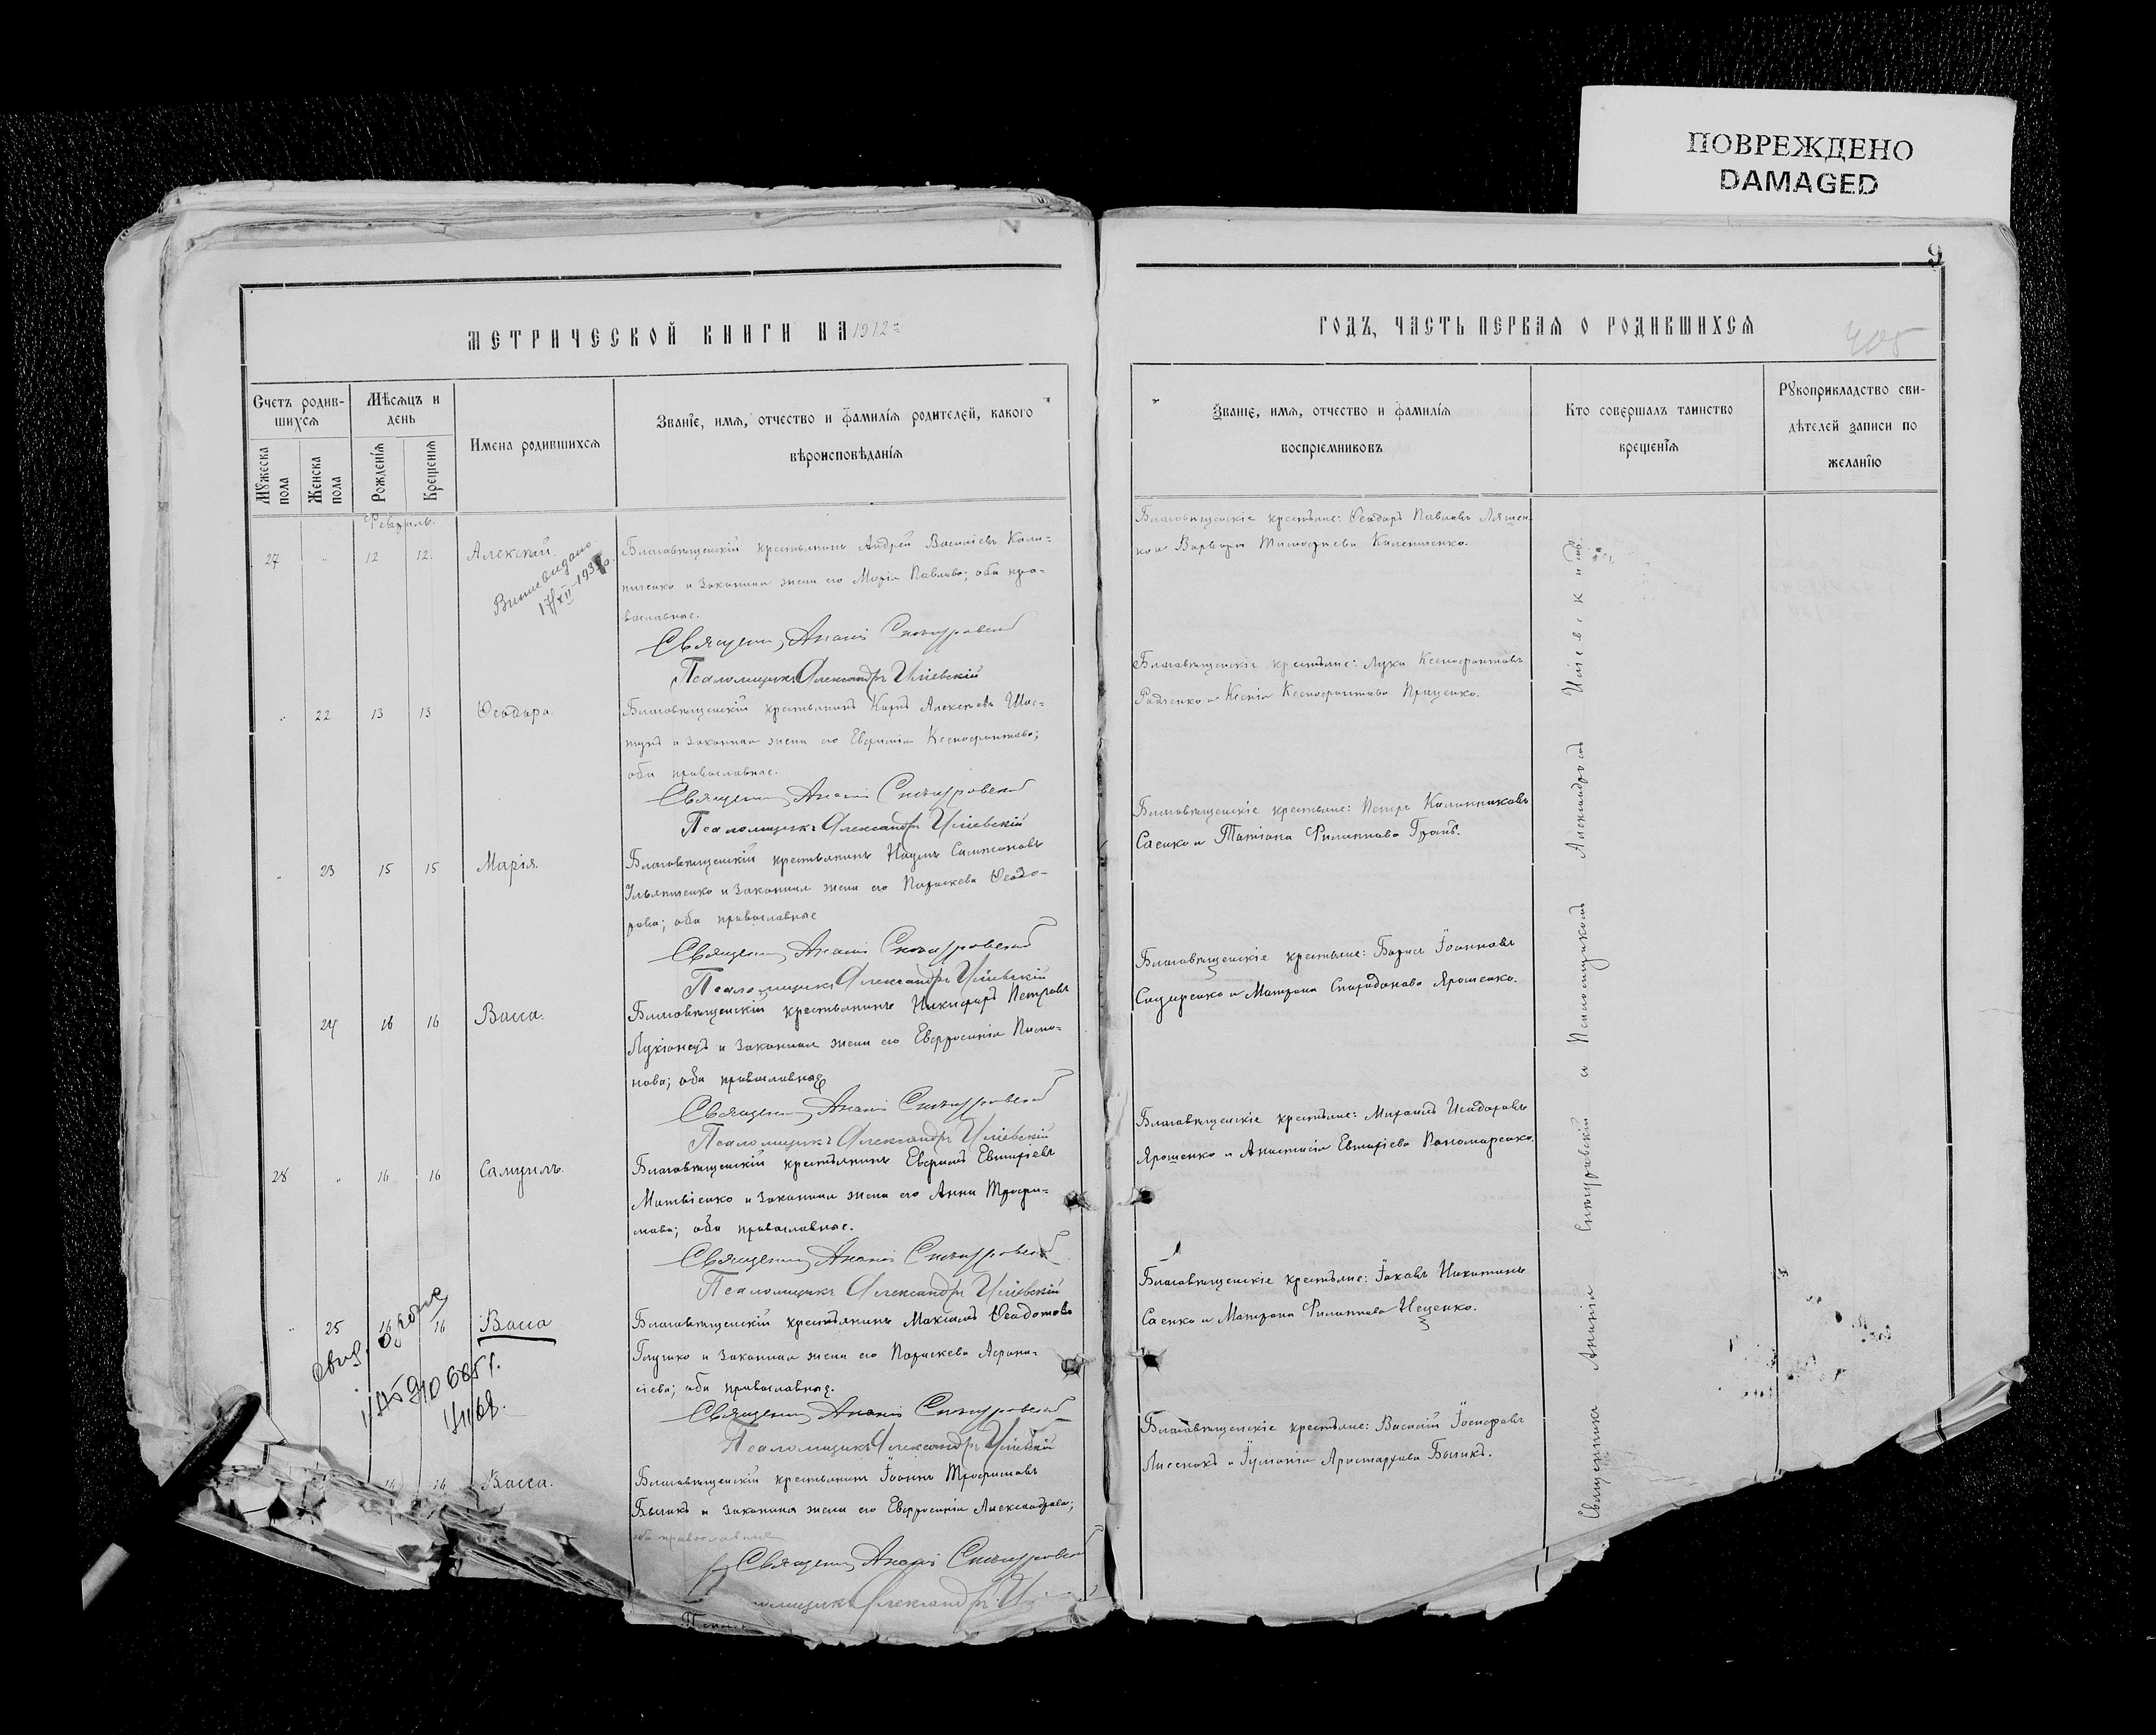 ПОВРЕЖДЕНО
DAMAGED
9
МЕТРИЧЕСКОЙ КНИГИ НА 1912
ГОДЪ, ЧАСТЬ ПЕРВАЯ О РОДИВШИХСЯ
405
Счетъ родив-
шихся
Мужеска пола
Женска пола
Мѣсяцъ и
день
Рожденія
Крещенія
Имена родившихся
Званіе, имя, отчество и фамилія родителей, какого
вѣроисповѣданія
Званіе, имя, отчество и фамилія
воспріемниковъ
Кто совершалъ таинство
крещенія
Рукоприкладство сви-
дѣтелей записи по
желанію
Февраль.
27 " 12 12. Алексѣй.
17/XII-193
Благовѣщенскій крестьянинъ Андрей Васильевъ Кали-
ниченко и законная жена его Марія Павлова; оба пра-
вославные.
Священникъ Ананій
Псаломщикъ Александръ
Благовѣщенскіе крестьяне: Ѳеодоръ Павловъ Ляшен-
ко и Варвара Тимофеева Калениченко.
" 22 13 13 Ѳеодора.
Благовѣщенскій крестьянинъ Карпъ Алексѣевъ Шос-
тукъ и законная жена его Евфимія Ксенофонтова;
оба православные.
Священникъ Ананій
Псаломщикъ Александръ
Благовѣщенскіе крестьяне: Лука Ксенофонтовъ
Радченко и Ксенія Ксенофонтова Проценко.
" 23 15 15 Марія.
Благовѣщенскій крестьянинъ Наумъ Симеоновъ
Ильяшенко и законная жена его Параскева Ѳеодо-
рова; оба православные
Священникъ Ананій
Псаломщикъ Александръ
Благовѣщенскіе крестьяне: Петръ Калинниковъ
Саенко и Татіана Филиппова Громъ.
24 16 16 Васса.
Благовѣщенскій крестьянинъ Никифоръ Петровъ
Лукіонецъ и законная жена его Евфросинія
нова; оба православные
Священникъ Ананій
Псаломщикъ Александръ
Благовѣщенскіе крестьяне: Борисъ Іоанновъ
Сидоренко и Матрона Спиридонова Ярошенко.
28 " 16 16 Самуилъ.
Благовѣщенскій крестьянинъ Ефремъ Евтихіевъ
Матвіенко и законная жена его Анна Трофи-
мова; оба православные.
Священникъ Ананій
Псаломщикъ Александръ
Благовѣщенскіе крестьяне: Михаилъ Исидоровъ
Ярошенко и Анастасія Евтихіева Пономаренко.
" 25 16 16 Васса
Благовѣщенскій крестьянинъ Максимъ Ѳеодотовъ
Глушко и законная жена его Параскева Афана-
сіева; оба православные.
Священникъ Ананій
Псаломщикъ Александръ
Благовѣщенскіе крестьяне: Іаковъ Никитинъ
Саенко и Матрона Филиппова Иещенко.
16 16 Васса.
Благовѣщенскій крестьянинъ Іоаннъ Трофимовъ
Быликъ и законная жена его Евфросинія Александрова;
оба православные
Священникъ Ананій
Александръ
Благовѣщенскіе крестьяне: Василій Іосифовъ
Лисенокъ и Іуліанія Аристархова Быликъ.
Священника Ананія и Псаломщикомъ Александромъ